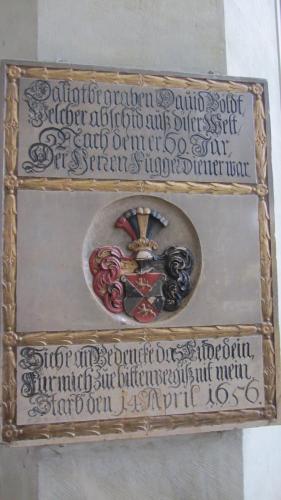 Da ligt begraben Dauid Boldt,
Welcher abschid auß diser Welt,
Nach dem er 69. Jar,
Der Herren Fugger Diener war
Sihe an Bedencke das Ende dein,
Für mich zue bitten vergiß nit mein
Starb den 14 April 1656